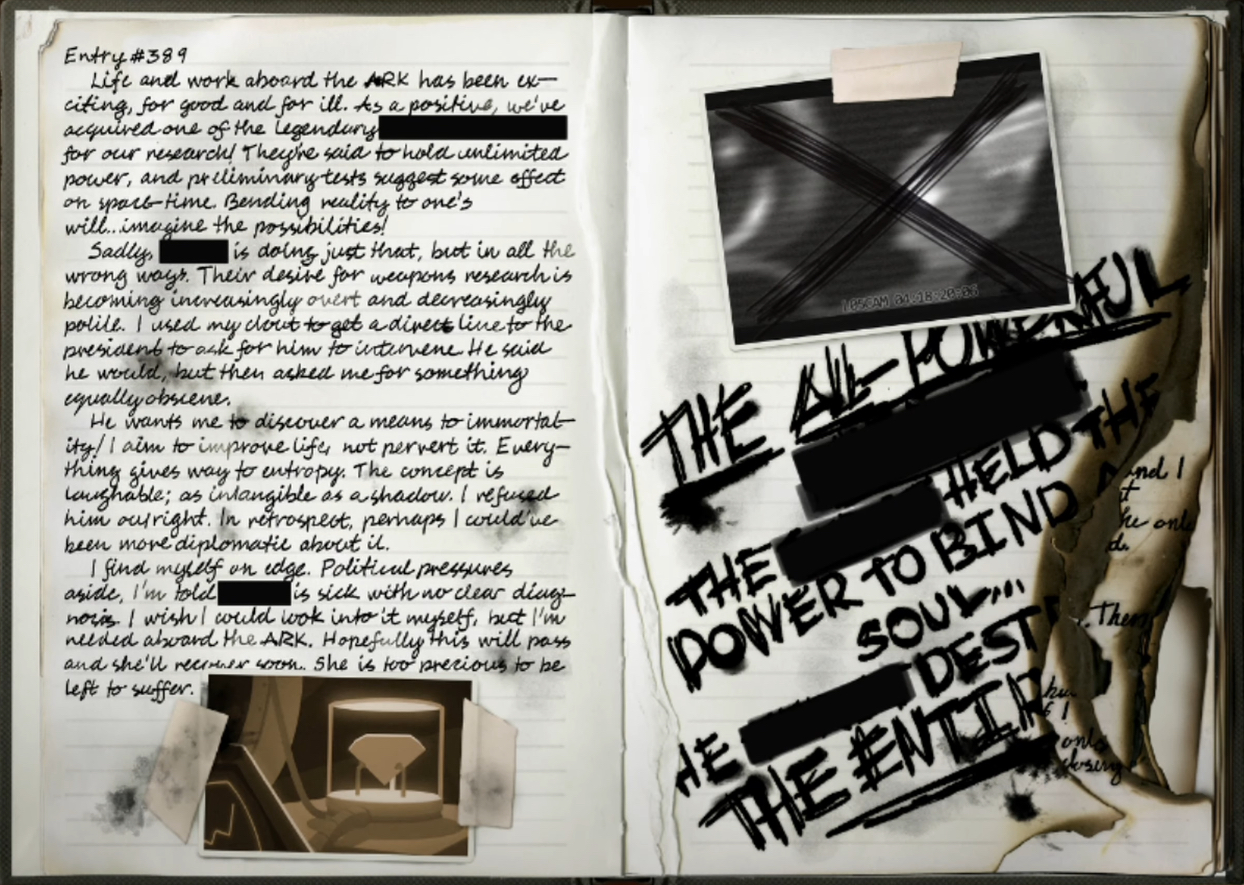 Entry #389
Life and work aboard the ARK has been ex-
citing, for good and for ill. As a positive, we've
acquired one of the legendary
for our research! They're said to hold unlimited
power, and preliminary tests suggest some effect
on space-time. Bending reality to one's
will...imagine the possibilities!
Sadly, is doing just that, but in all the
wrong ways. Their desire for weapons research is
becoming increasingly overt and decreasingly
polite. I used my clout to get a direct line to the
president to ask for him to intervene. He said
he would, but then asked me for something
equally obscene.
He wants me to discover a means to immortal-
ity! I aim to improve life, not pervert it. Every-
thing gives way to entropy. The concept is
laughable; as intangible as a shadow. I refused
him outright. In retrospect, perhaps I could've
been more diplomatic about it.
I find myself on edge. Political pressures
aside, I'm told is sick with no clear diag-
nosis. I wish I could look into it myself, but I'm
needed aboard the ARK. Hopefully this will pass
and she'll recover soon. She is too precious to be
left to suffer.
04:18:20:06
THE ALL-POWERFUL
HELD THE
THE
POWER TO BIND A
SOUL...
HE DEST
THE ENTIR
and I
he only
Then
only
closing